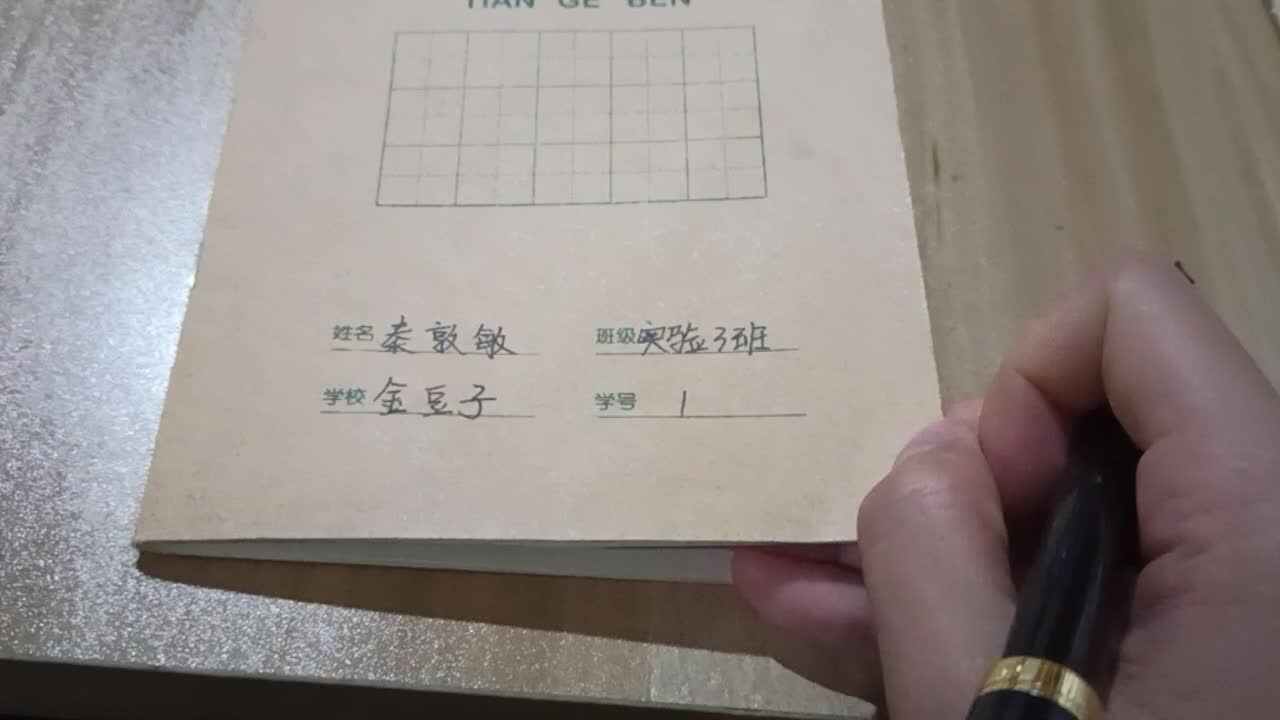 TIAN GE BEN
姓名 秦敦敏 班级 实验3班
学校 金豆子 学号 1